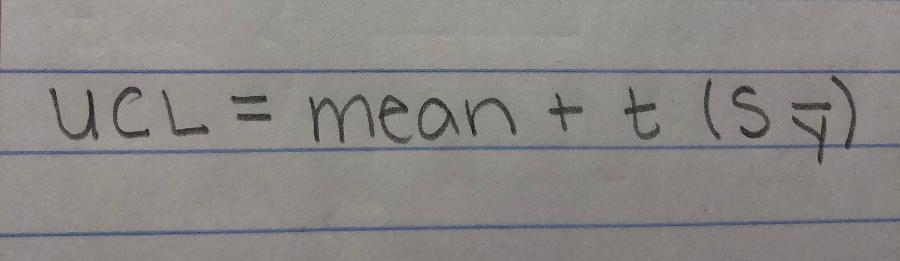 UCL = mean + t (S ȳ)